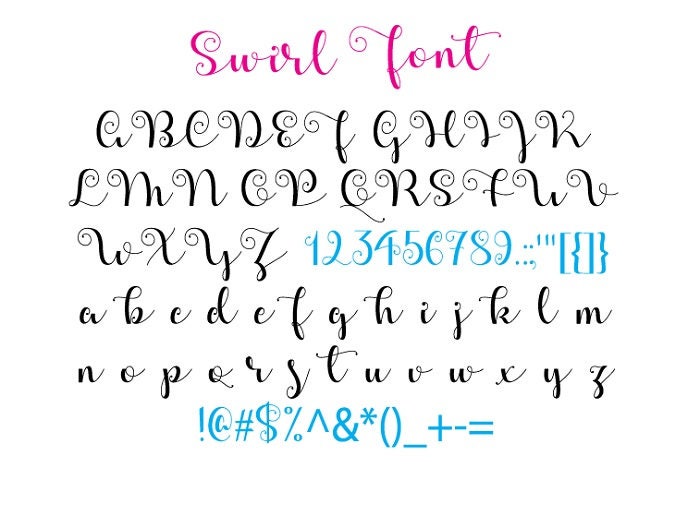 Swirl Font
ABCDEF GHIJK
LMN OP QRSTUV
WXYZ 123456789.:;'"[{]}
a b c d e f g h i j k l m
n o p q r s t u v w x y z
!@#$%^&*()_+-=